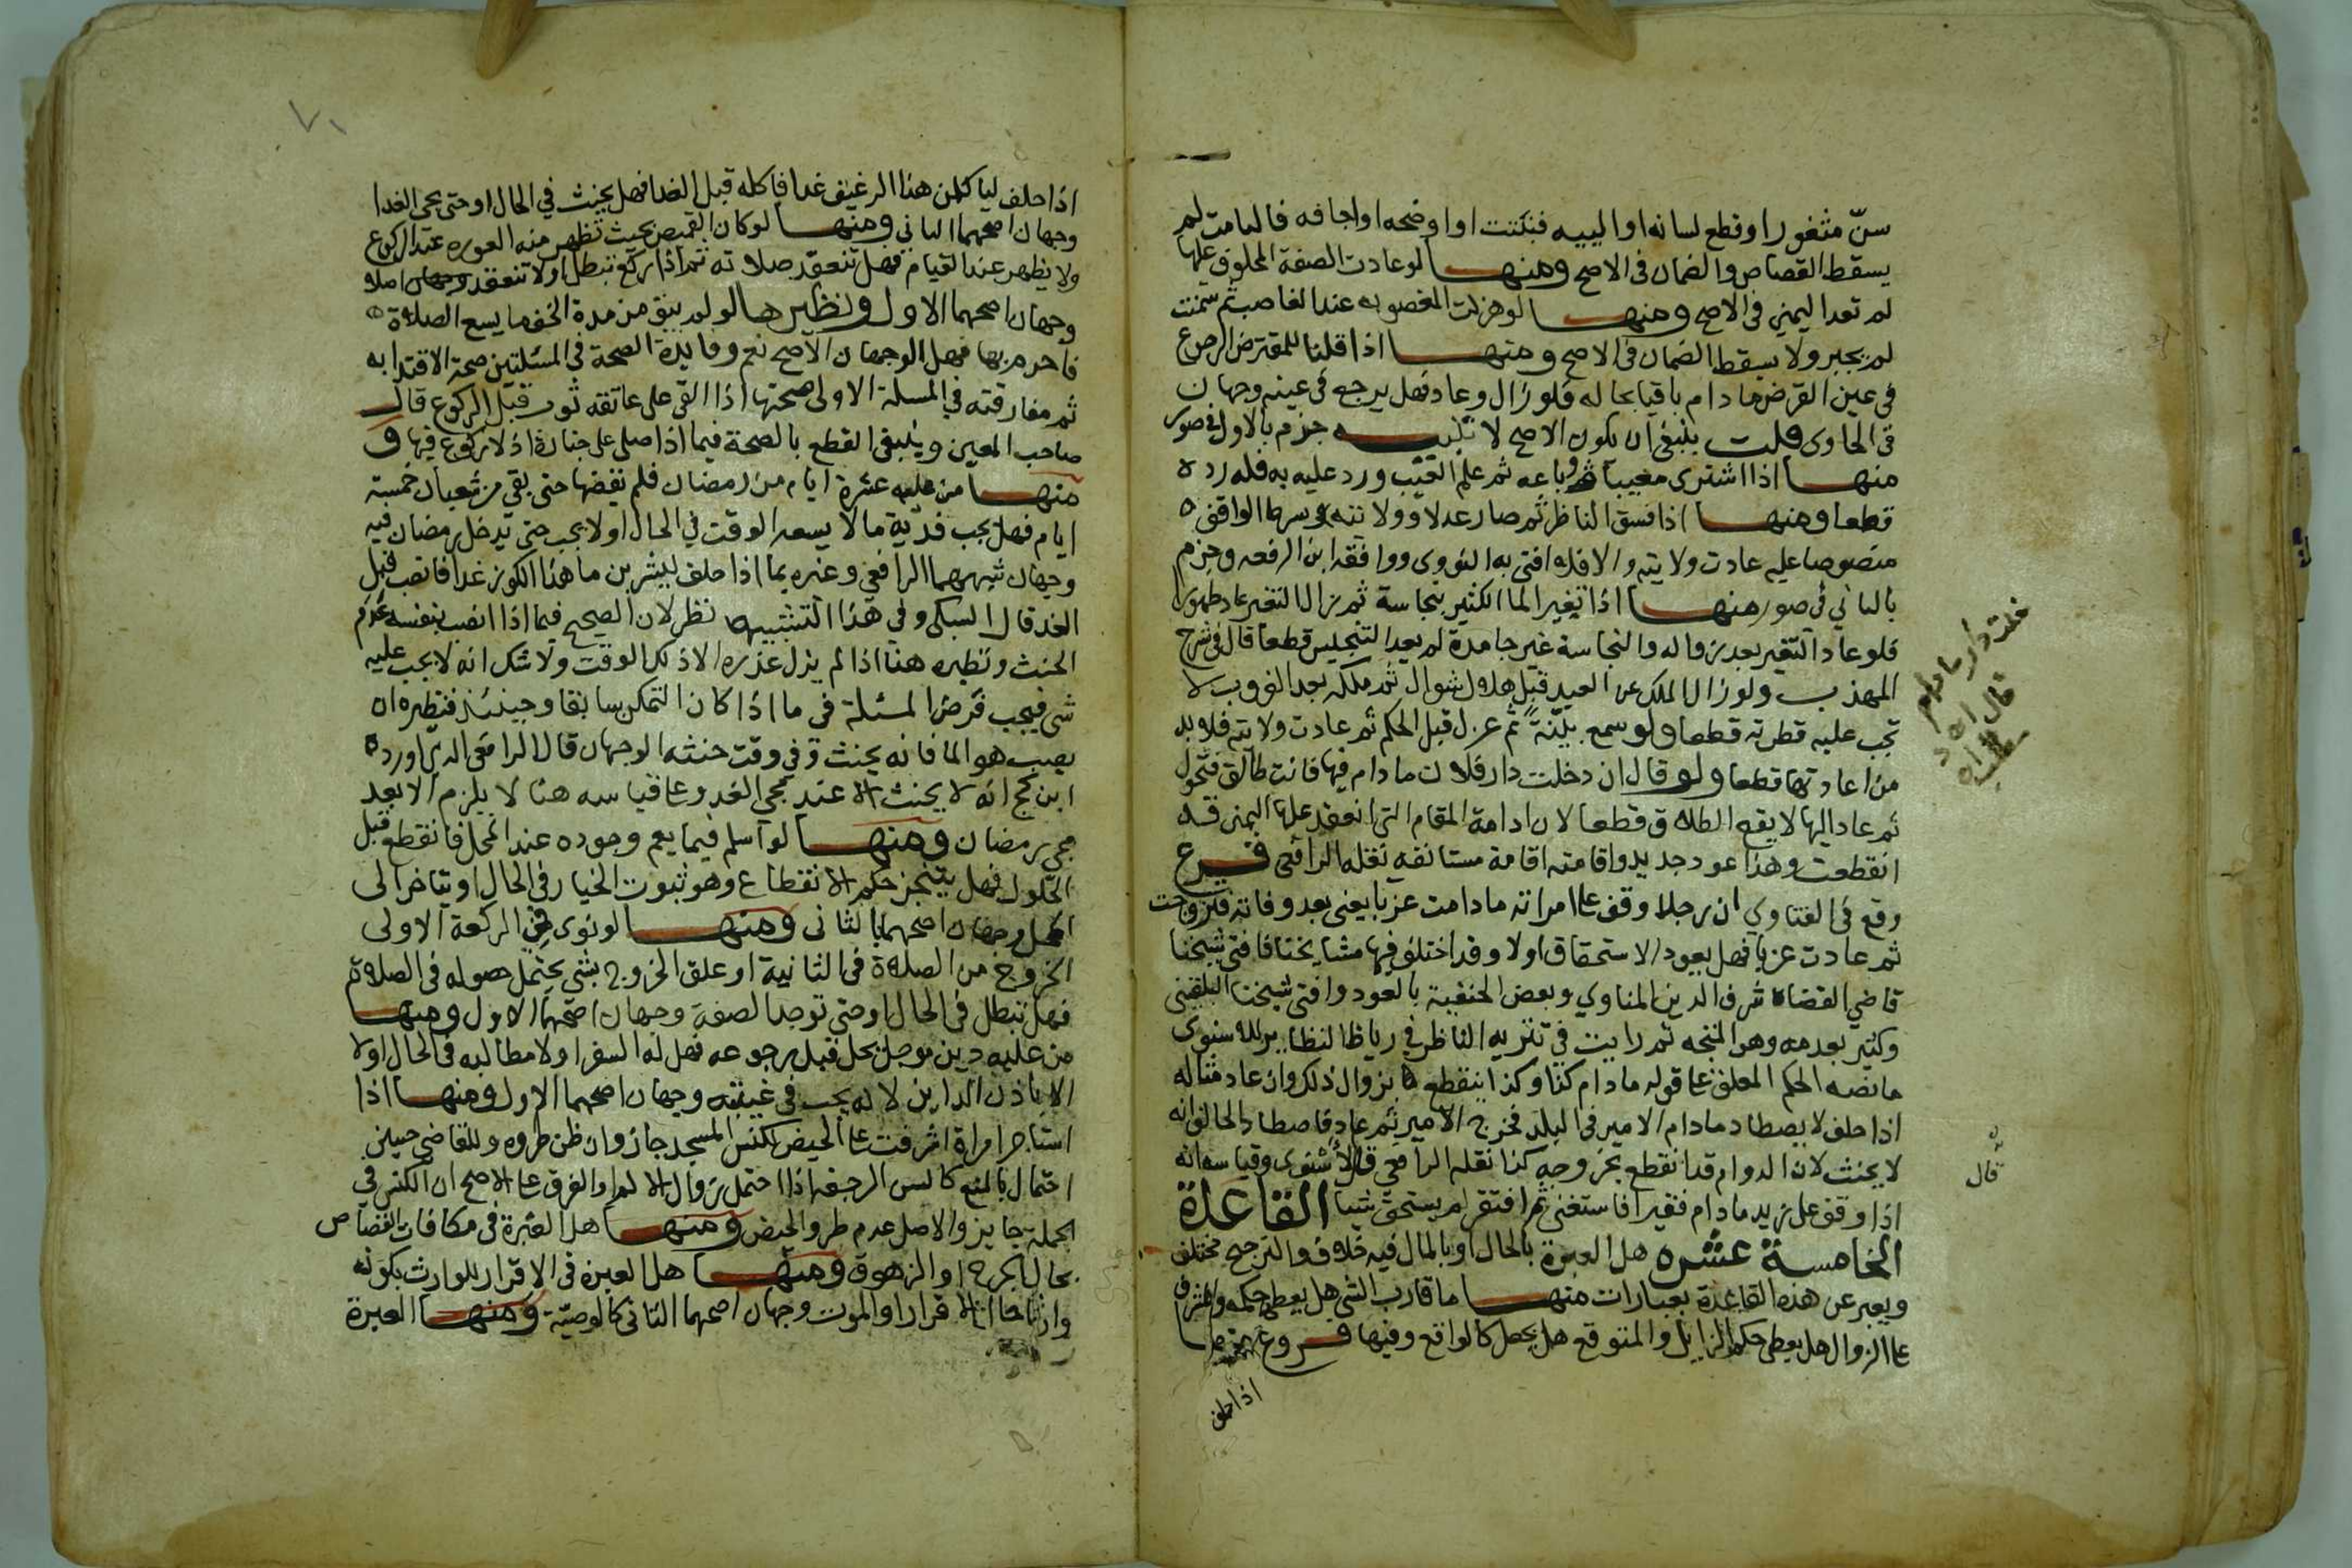 سن مثغور او قطع لسانه او الييه فنبتت او اوضحه او اجافه فالتامت لم
يسقط القصاص والضمان فى الاصح ومنها لو عادت الصفة المحلوف عليها
لم تعد اليمين فى الاصح ومنها لو هزلت المغصوبه عند الغاصب ثم سمنت
لم يجبر ولا يسقط الضمان فى الاصح ومنها اذا قلنا للمقترض الرجوع
فى عين القرض ما دام باقيا بحاله فلو زال وعاد فهل يرجع فى عينه وجهان
فى الحاوى قلت ينبغى ان يكون الاصح لا تنبيه جزم بالاول فى صور
منها اذا اشترى معيبا وباعه ثم علم العيب ورد عليه به فله رده
قطعا ومنها اذا فسق الناظر ثم صار عدلا وولايته بشرط الواقف
منصوصا عليه عادت ولايته والا فلا افتى به النووى ووافقه ابن الرفعه وجزم
بالثانى فى صور منها اذا تغير الما الكثير بنجاسة ثم زال التغير عاد طهورا
فلو عاد التغير بعد زواله والنجاسة غير جامدة لم يعد التنجيس قطعا قال فى شرح
المهذب ولو زال الملك عن العبد قبل هلال شوال ثم ملكه بعد الغروب لا
تجب عليه فطرته قطعا ولو سمع بينة ثم عزل قبل الحكم ثم عادت ولايته فلا بد
من اعادتها قطعا ولو قال ان دخلت دار فلان ما دام فيها فانت طالق فتحول
ثم عاد اليها لا يقع الطلاق قطعا لان ادامة المقام التى انعقد عليها اليمين قد
انقطعت وهذا عود جديد واقامته اقامة مستانفه نقله الرافعى فرع
وقع فى الفتاوى ان رجلا وقف على امراته ما دامت عزبا يعنى بعد وفاته فتزوجت
ثم عادت عزبا فهل يعود الاستحقاق اولا وقد اختلف فيها مشايخنا فافتى شيخنا
قاضى القضاة شرف الدين المناوى وبعض الحنفية بالعود وافتى شيخنا البلقينى
وكثير بعدمه وهو المتجه ثم رايت فى تنزيه الناظر فى رياض النظاير للاسنوى
ما نصه الحكم المعلق على قوله ما دام كذا وكذا ينقطع بزوال ذلك وان عاد مثاله
اذا حلف لا يصطاد ما دام الامير فى البلد فخرج الامير ثم عاد فاصطاد الحالف انه
لا يحنث لان الدوام قد انقطع بخروجه كذا نقله الرافعى قال الاسنوى وقياسه انه
اذا وقف على زيد ما دام فقيرا فاستغنى ثم افتقر لم يستحق شيا القاعدة
الخامسة عشره هل العبرة بالحال او بالمال فيه خلاف والترجيح مختلف
ويعبر عن هذه القاعدة بعبارات منها ما قارب الشى هل يعطى حكمه والمشرف
على الزوال هل يعطى حكم الزايل والمتوقع هل يجعل كالواقع وفيها فروع منها
اذا حلف
قال
٧١
اذا حلف لياكلن هذا الرغيف غدا فاكله قبل الغد فهل يحنث فى الحال او حتى يجى الغدا
وجهان اصحهما الثانى ومنها لو كان القميص بحيث تظهر منه العوره عند الركوع
ولا يظهر عند القيام فهل تنعقد صلاته ثم اذا ركع تبطل او لا تنعقد اصلا
وجهان اصحهما الاول ونظيرها لو لم يبق من مدة الخف ما يسع الصلاة
فاحرم بها فهل الوجهان الاصح نعم وفايدة الصحة فى المسئلتين صحة الاقتدا به
ثم مفارقته فى المسلة الاولى صحتها اذا القى على عاتقه ثوب قبل الركوع قال
صاحب المعين وينبغى القطع بالصحة فيما اذا صلى على جنازة اذ لا ركوع فيها و
منها من عليه عشرة ايام من رمضان فلم يقضها حتى بقى من شعبان خمسة
ايام فهل يجب فدية ما لا يسعه الوقت فى الحال او لا يجب حتى يدخل رمضان فيه
وجهان شبههما الرافعى وغيره بما اذا حلف ليشربن ما هذا الكوز غدا فانصب قبل
الغد قال السبكى وفى هذا التشبيه نظر لان الصحيح فيما اذا انصب بنفسه عدم
الحنث ونظيره هنا اذا لم يزل عذره الا ذلك الوقت ولا شك انه لا يجب عليه
شى فيجب فرض المسئلة فى ما اذا كان التمكن سابقا وحينئذ فنظيره ان
يصب هو الما فانه يحنث وفى وقت حنثه الوجهان قال الرافعى الذى اورده
ابن كج انه لا يحنث الا عند مجى الغد وعلى قياسه هنا لا يلزم الا بعد
مجى رمضان ومنها لو اسلم فيما يعم وجوده عند المحل فانقطع قبل
الحلول فهل يتنجز حكم الانقطاع وهو ثبوت الخيار فى الحال او يتاخر الى
المحل وجهان اصحهما الثانى ومنها لو نوى فى الركعة الاولى
الخروج من الصلاة فى الثانية او علق الخروج بشى يحتمل حصوله فى الصلاة
فهل تبطل فى الحال او حتى توجد الصفة وجهان اصحهما الاول ومنها
من عليه دين موجل يحل قبل رجوعه فهل له السفر اولا مطالبه فى الحال اولا
الا باذن الداين لانه يجب فى غيبته وجهان اصحهما الاول ومنها اذا
استاجر امراة اشرفت على الحيض لكنس المسجد جاز وان ظن طروه وللقاضى حسين
احتمال بالمنع كالسن الرجفه اذا احتمل زوال الالم والفرق على الاصح ان الكنس فى
الجملة جايز والاصل عدم طرو الحيض ومنها هل العبرة فى مكافات القصاص
بحال الجرح او الزهوق ومنها هل العبرة فى الاقرار للوارث بكونه
وارثا حال الاقرار او الموت وجهان اصحهما الثانى كالوصية ومنها العبرة